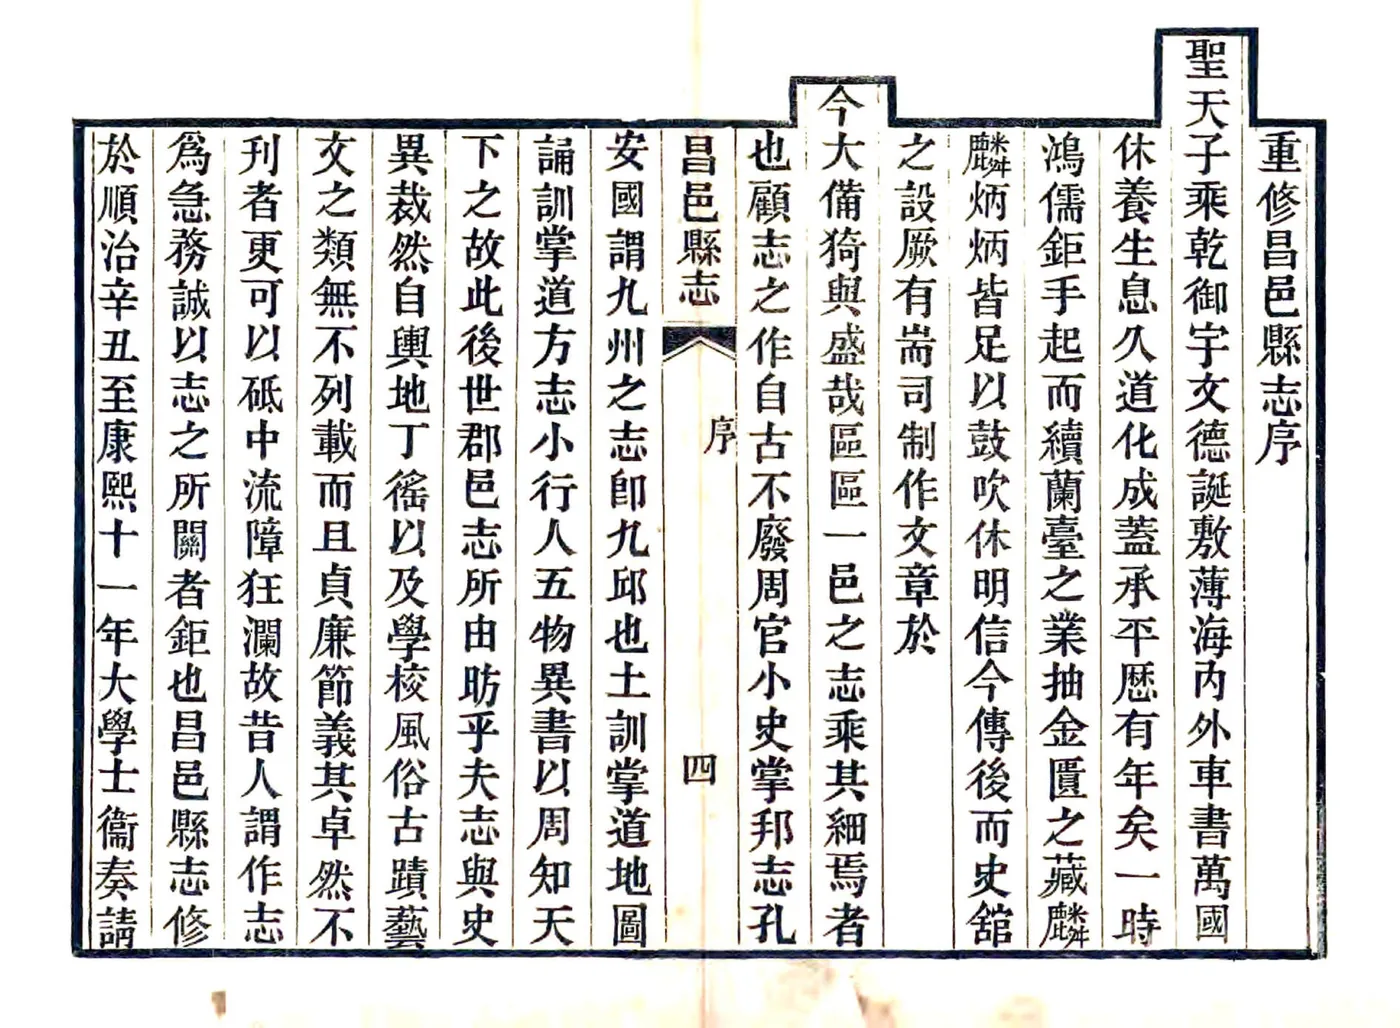 重修昌邑縣志序
聖天子乘乾御宇文德誕敷薄海內外車書萬國
休養生息久道化成蓋承平歷有年矣一時
鴻儒鉅手起而續蘭臺之業抽金匱之藏麟
麟炳炳皆足以鼓吹休明信今傳後而史舘
之設厥有耑司制作文章於
今大備猗與盛哉區區一邑之志乘其細焉者
也顧志之作自古不廢周官小史掌邦志孔
昌邑縣志
序
四
安國謂九州之志卽九邱也土訓掌道地圖
誦訓掌道方志小行人五物異書以周知天
下之故此後世郡邑志所由昉乎夫志與史
異裁然自輿地丁徭以及學校風俗古蹟藝
文之類無不列載而且貞廉節義其卓然不
刊者更可以砥中流障狂瀾故昔人謂作志
爲急務誠以志之所關者鉅也昌邑縣志修
於順治辛丑至康熙十一年大學士衞奏請